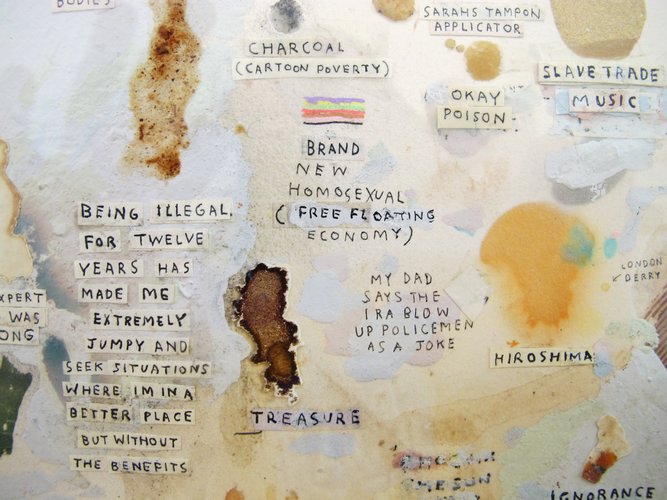 BODIES
SARAHS TAMPON
APPLICATOR
CHARCOAL
(CARTOON POVERTY)
SLAVE TRADE
MUSIC
OKAY
POISON.
BRAND
NEW
HOMOSEXUAL
(FREE FLOATING
ECONOMY)
BEING ILLEGAL,
FOR TWELVE
YEARS HAS
MADE ME
EXTREMELY
JUMPY AND
SEEK SITUATIONS
WHERE IM IN A
BETTER PLACE
BUT WITHOUT
THE BENEFITS
MY DAD
SAYS THE
IRA BLOW
UP POLICEMEN
AS A JOKE
LONDON
DERRY
HIROSHIMA
XPERT
WAS
ONG
TREASURE
THE SUN
IGNORANCE